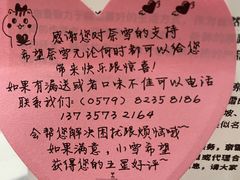 感谢您对奈雪的支持
希望奈雪无论何时都可以给您
带来快乐跟惊喜!
如果有漏送或者口味不佳可以电话
联系我们:(0579) 8235 8186
137 3573 2164
会帮您解决困扰跟烦恼哦~
如果满意,小雪希望
获得您的五星好评~